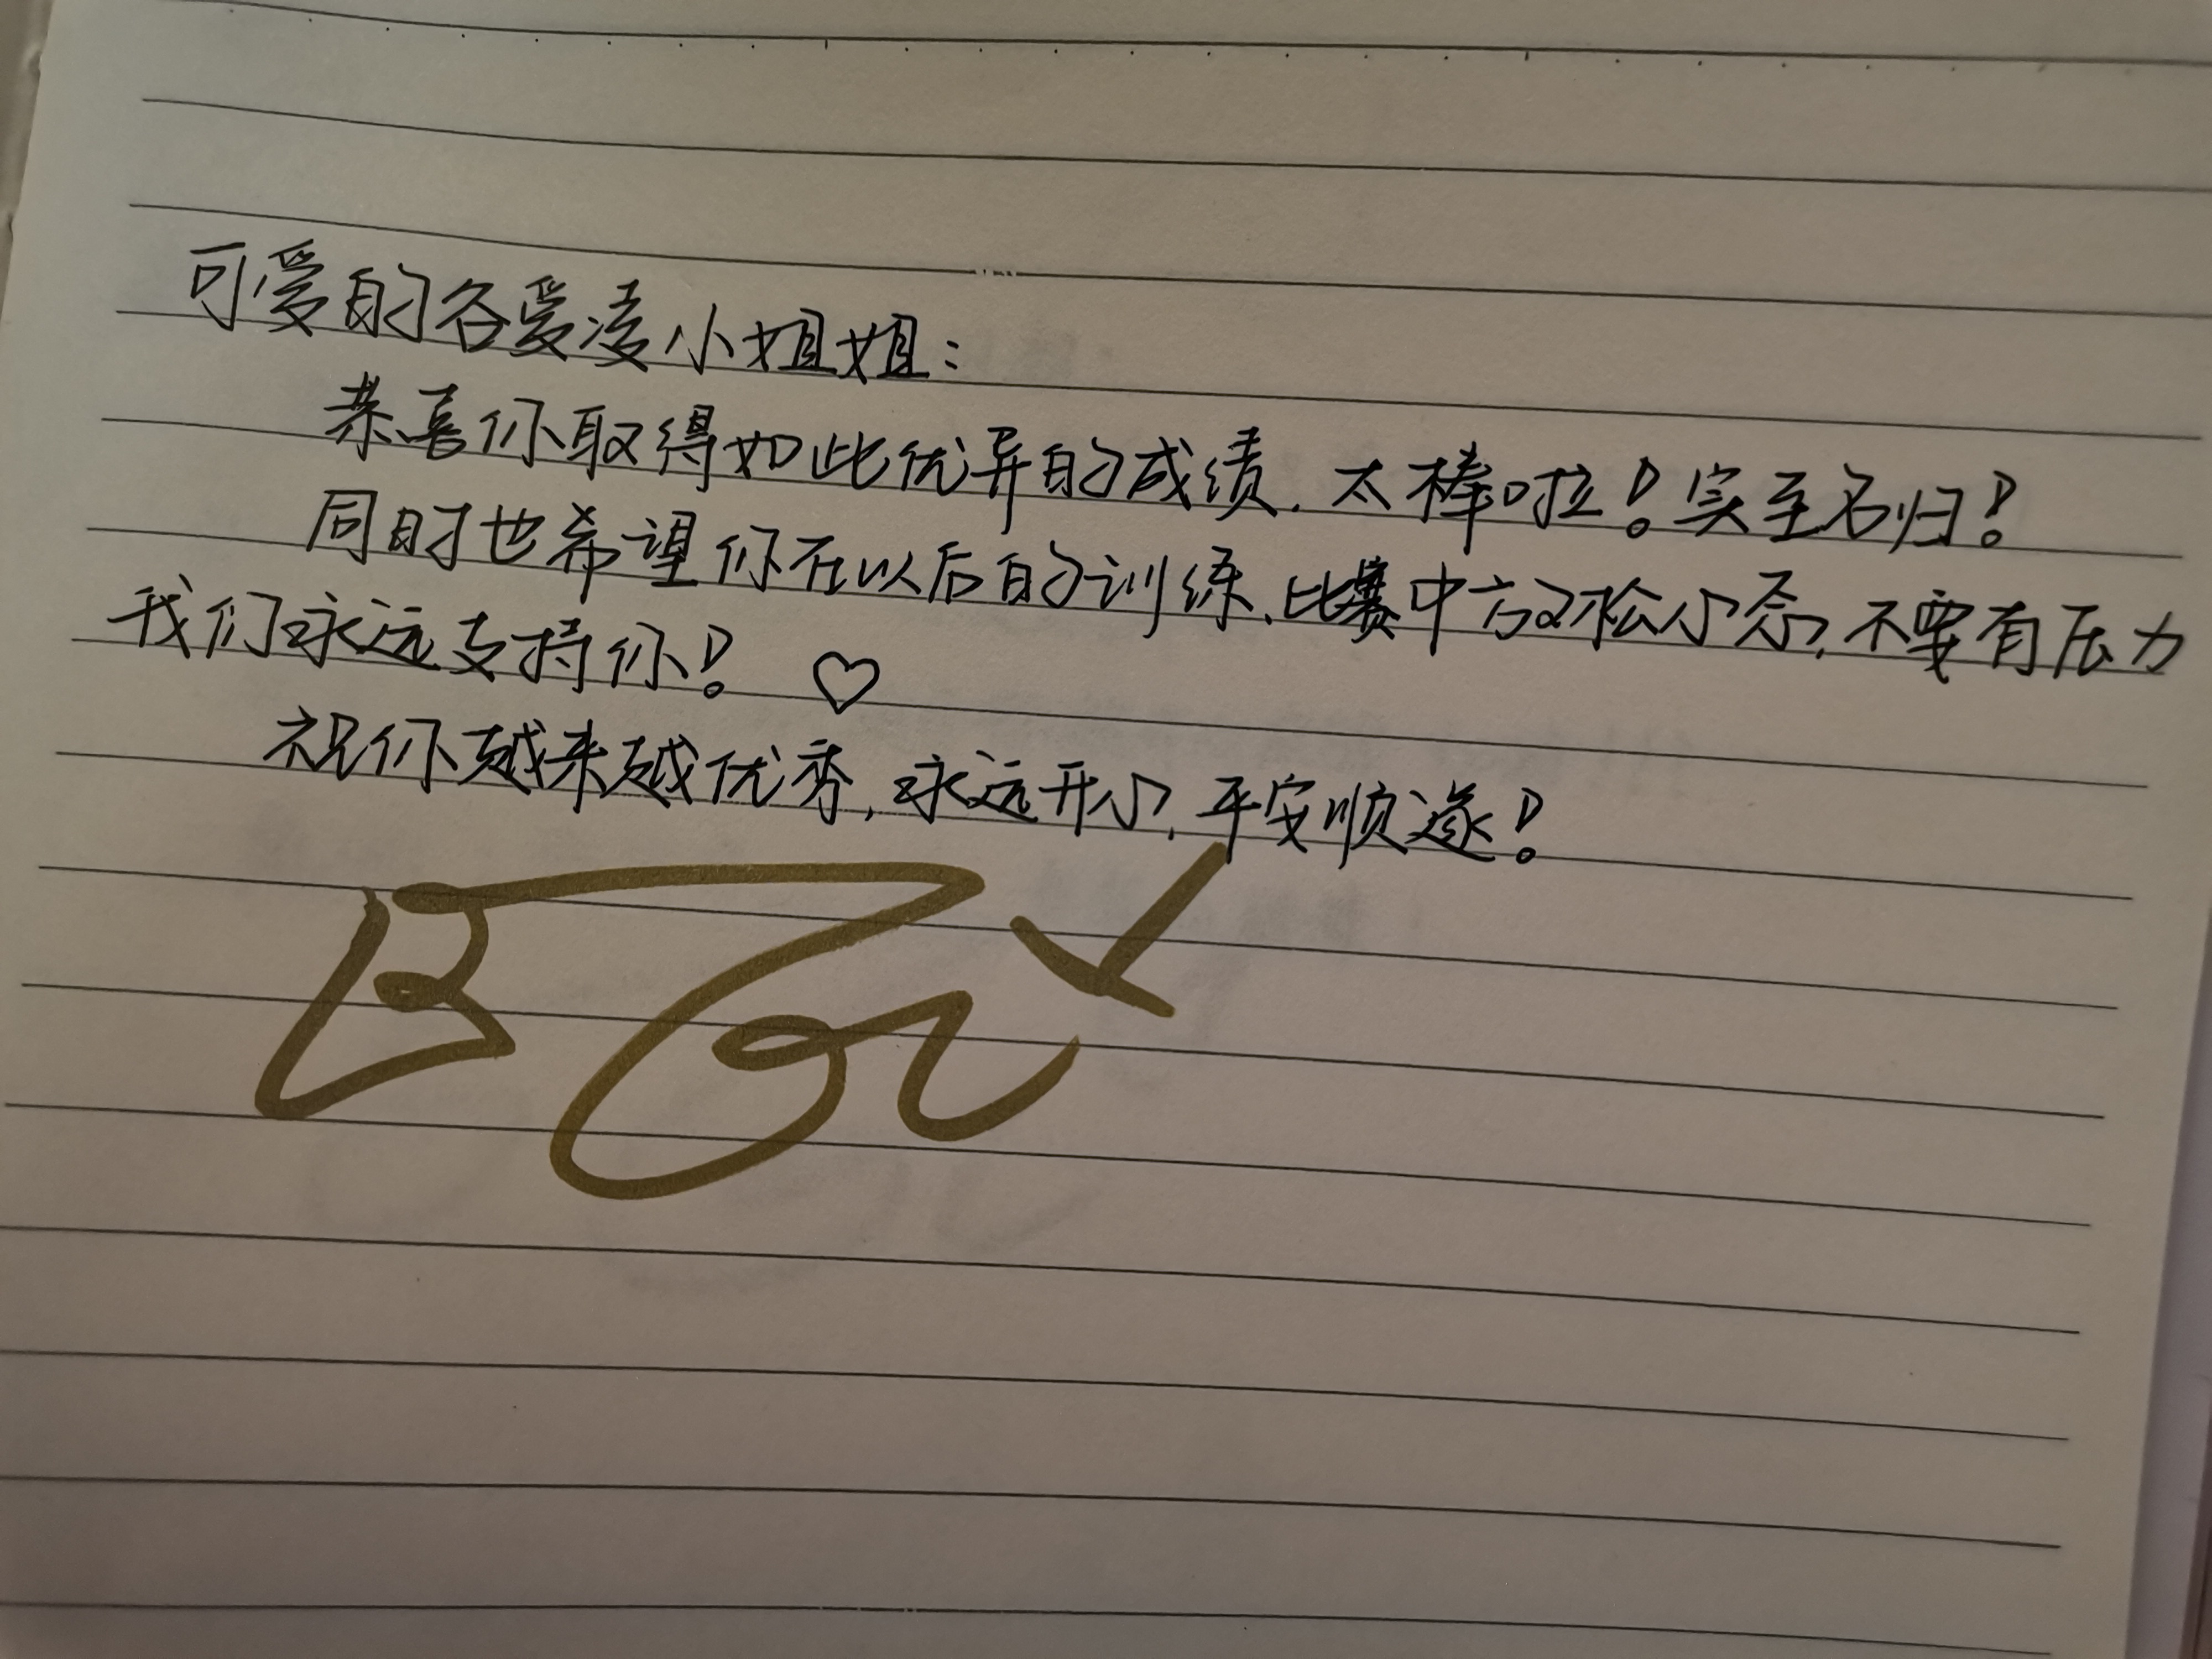 可爱的谷爱凌小姐姐：
恭喜你取得如此优异的成绩，太棒啦！实至名归！
同时也希望你在以后的训练、比赛中放松心态，不要有压力
我们永远支持你！♡
祝你越来越优秀，永远开心，平安顺遂！